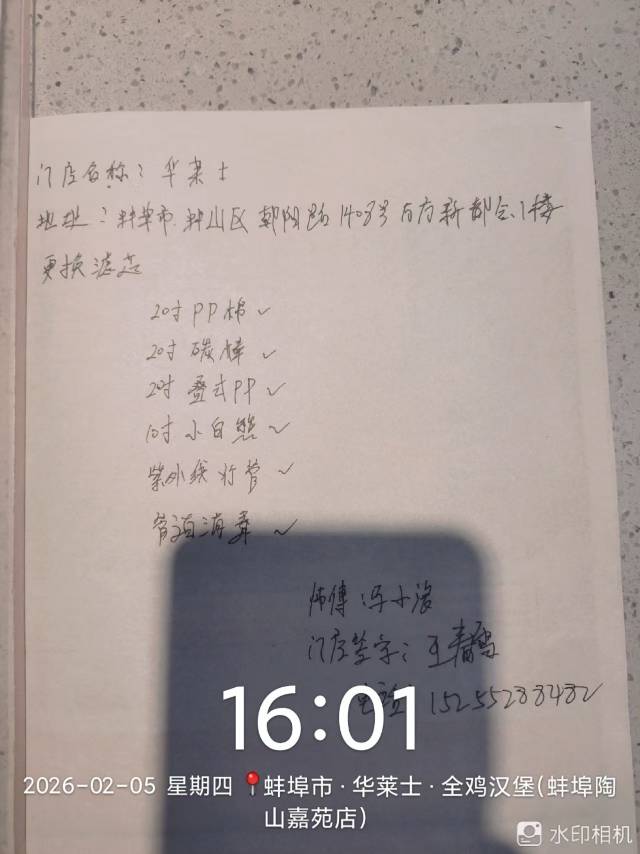 门店名称：华莱士
地址：蚌埠市蚌山区朝阳路1408号百方新都会1楼
更换滤芯
20寸PP棉✓
20寸碳棒✓
20寸叠式PP✓
10寸小白熊✓
紫外线灯管✓
管道消毒✓
师傅：马小浩
门店签字：王春
电话：15255288482
16:01
2026-02-05 星期四 📍蚌埠市·华莱士·全鸡汉堡(蚌埠陶
山嘉苑店)
水印相机